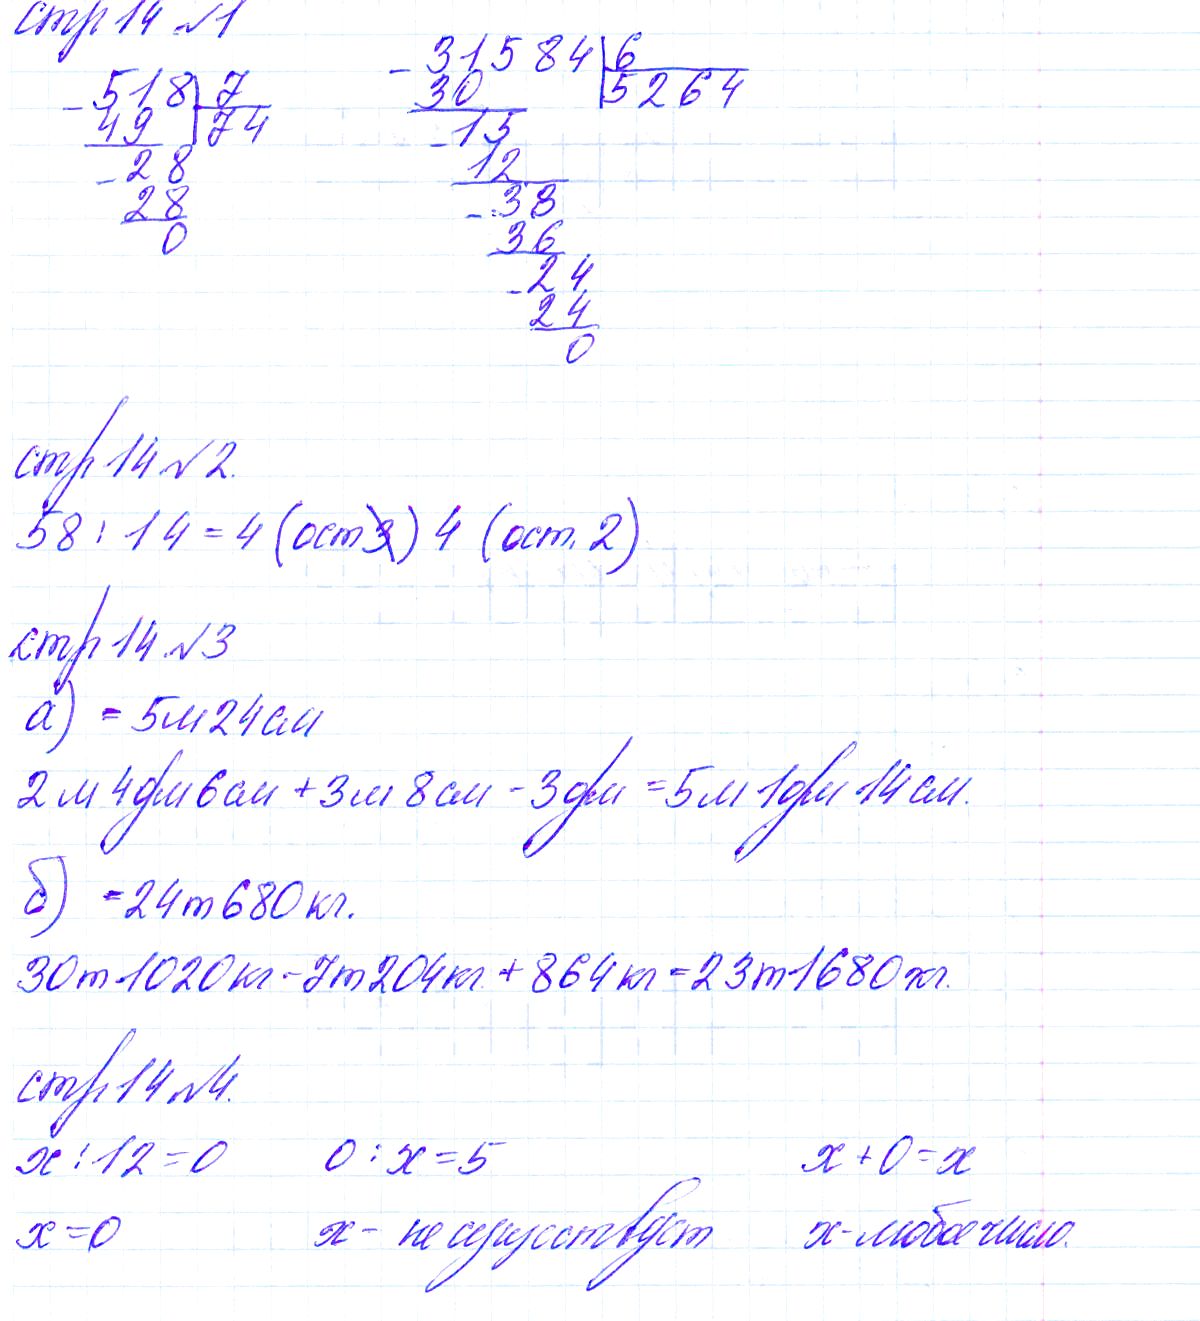 стр 14 №1
-518 | 7
49 | 74
-28
28
0
-31584 | 6
30 | 5264
-15
12
-38
36
-24
24
0
стр 14 №2.
58 : 14 = 4 (ост 3) 4 (ост. 2)
стр 14 №3
а) = 5м 24см
2м 4дм 6см + 3м 8см - 3дм = 5м 1дм 14см.
б) = 24т 680кг.
30т 1020кг - 7т 204кг + 864кг = 23т 1680кг.
стр 14 №4.
x : 12 = 0 0 : x = 5 x + 0 = x
x = 0 x - не существует x - любое число.